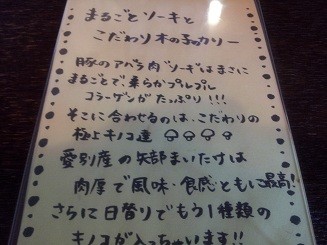 まるごとソーキと
こだわり木の子のカリー
豚のアバラ肉"ソーキ"はまさに
まるごとで、柔らかプルプル
コラーゲンがたっぷり!!!
そこに合わせるのは、こだわりの
極上キノコ達
愛別産の矢部まいたけは
肉厚で風味・食感ともに最高!
さらに日替りでもう1種類の
キノコが入っちゃいます!!